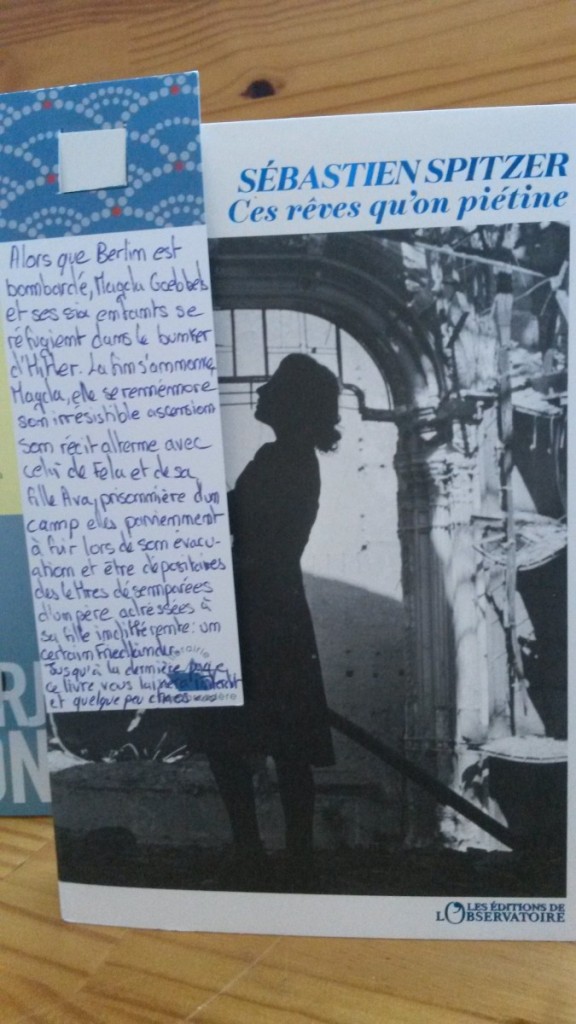 SÉBASTIEN SPITZER
Ces rêves qu'on piétine
Alors que Berlin est
bombardé, Magda Goebbels
et ses six enfants se
réfugient dans le bunker
d'Hitler. La fin s'annonce,
Magda, elle se remémore
son irrésistible ascension
son récit alterne avec
celui de Fela et de sa
fille Ava, prisonnière d'un
camp elles parviennent
à fuir lors de son évacu-
ation et être dépositaires
des lettres désemparées
d'un père adressées à
sa fille indifférente : un
certain Friedländer.
Jusqu'à la dernière page
ce livre vous laissera
et quelque peu
LES ÉDITIONS DE
L'OBSERVATOIRE
RJ
ON